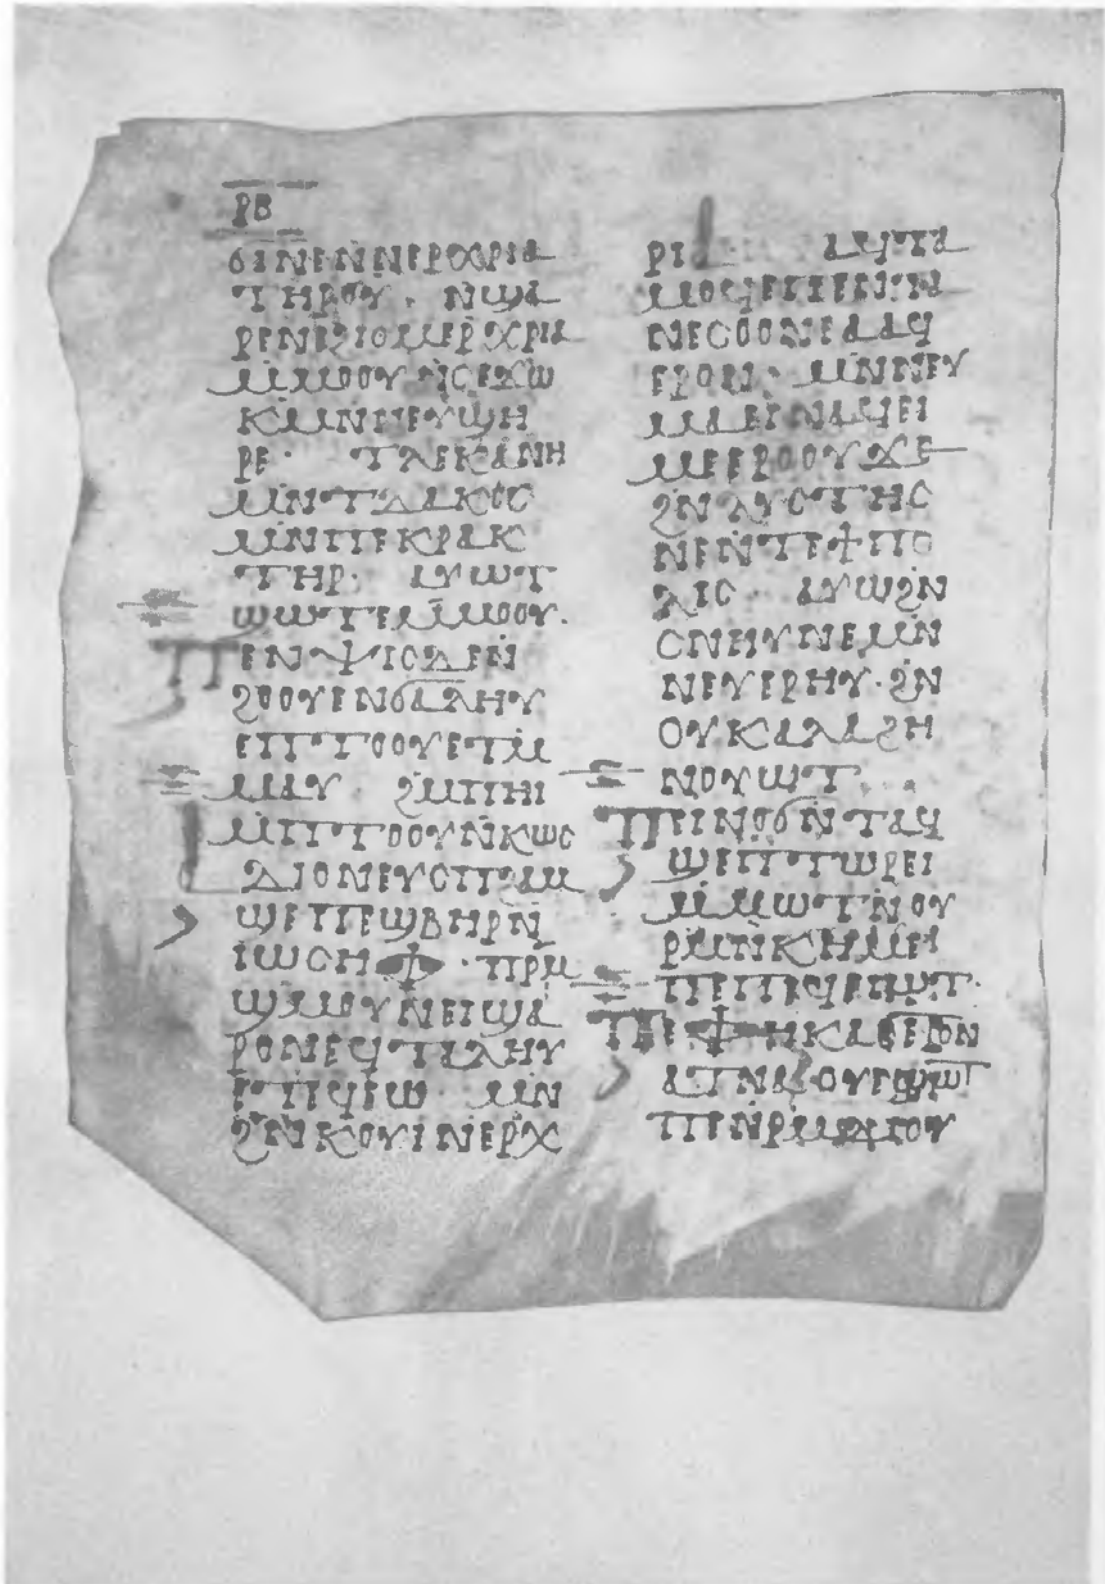 ⲣⲃ
ϭⲓⲛⲉⲛⲛⲉⲣⲟⲭⲣⲓⲁ
ⲧⲏⲣⲟⲩ · ⲛϣⲁ
ⲣⲉⲛⲉϩⲓⲟⲙⲉⲣⲭⲣⲓⲁ
ⲙ̄ⲙⲟⲟⲩ ⲛ̄ⲥⲉϫⲱ
ⲕⲙ̄ⲛⲛⲉⲩϣⲏ
ⲣⲉ · ⲧⲗⲉⲕⲁⲛⲏ
ⲙⲛ̄ⲧⲇⲁⲕⲟⲥ
ⲙⲛ̄ⲡⲉⲕⲣⲁⲕ
ⲧⲏⲣ · ⲁⲩⲱⲧ
ϣⲱⲧⲉⲙ̄ⲙⲟⲟⲩ ·
ⲡⲉⲛⲯⲓⲥⲇⲉⲛ̄
ϩⲟⲟⲩⲉⲛϭⲁⲗⲏⲩ
ⲉⲡⲧⲟⲟⲩⲉⲧⲙ̄
ⲙⲁⲩ · ϩⲙ̄ⲡⲏⲓ
ⲙ̄ⲡⲧⲟⲟⲩⲛ̄ⲕⲱⲥ
ⲇⲓⲟⲛⲉⲩⲥⲡϩⲁⲙ
ϣⲉⲡⲉϣⲃⲏⲣⲛ̄
ⲓⲱⲥⲏⲫ · ⲡⲣⲙ̄
ϣⲙⲟⲩⲛⲉⲓϣⲁ
ⲣⲟⲛⲉϥⲧⲁⲗⲏⲩ
ⲉⲡⲉϥⲉⲓⲱ · ⲙⲛ̄
ϩⲛ̄ⲕⲟⲩⲓⲛⲉⲣⲭ
ⲣⲓⲁ ⲁϥⲧⲁ
ⲙⲟϥⲉⲡⲉⲛⲧⲁ
ⲛⲉⲥⲟⲟⲛⲉⲁⲁϥ
ⲉⲣⲟⲛ · ⲙⲛ̄ⲛⲉⲩ
ⲙⲁⲉⲓⲛⲁϥⲉⲓ
ⲙⲉⲉⲣⲟⲟⲩϫⲉ
ϩⲛ̄ⲗⲩⲥⲧⲏⲥ
ⲛⲉⲛ̄ⲧⲉϯⲡⲟ
ⲗⲓⲥ · ⲁⲩⲱϩⲛ̄
ⲥⲛⲏⲩⲛⲉⲙⲛ̄
ⲛⲉⲩⲉⲣⲏⲩ · ϩⲛ̄
ⲟⲩⲕⲁⲗⲁϩⲏ
ⲛⲟⲩⲱⲧ
ⲡⲉⲓⲛⲟϭⲛ̄ⲧⲁϥ
ϣⲉⲡⲧⲱⲣⲉⲓ
ⲙ̄ⲙⲱⲧⲛ̄ⲟⲩ
ⲣⲙ̄ⲛ̄ⲕⲏⲙⲉ
ⲡⲉⲡⲉϥⲉⲓⲱⲧ ·
ⲁⲧⲛⲁⲩⲟⲩⲉⲓⲱⲧ